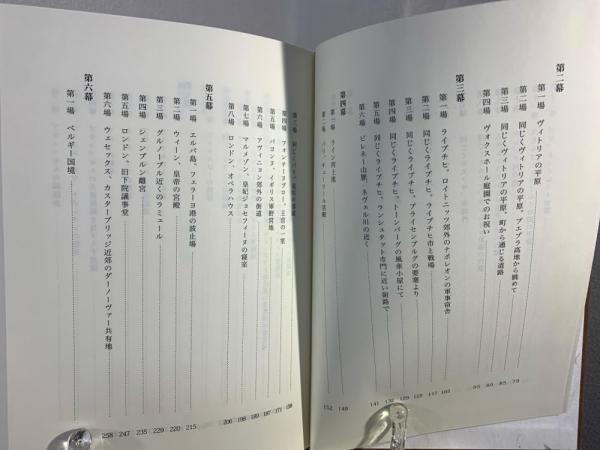 第二幕
第一場 ヴィトリアの平原
第二場 同じくヴィトリアの平原、プエブラ高地から眺めて
第三場 同じくヴィトリアの平原 町から通じる道路
第四場 ヴォクスホール庭園でのお祝い
第三幕
第一場 ライプチヒ、ロイトニッツ郊外のナポレオンの軍事宿舎
第二場 同じくライプチヒ、ライプチヒ市と戦場
第三場 同じくライプチヒ、プライセンブルグの要塞より
第四場 同じくライプチヒ、トーンバーグの風車小屋にて
第五場 同じくライプチヒ、ランシュタット市門に近い街路で
第六場 ピレネー山脈、ネヴェル川の近く
第四幕
第一場 ライン河上流
79 85 89 95 103 117 125 129 132 141 149 152
第四場 フォンテーヌブロー、王宮の一室
第五場 バヨンヌ、イギリス軍野営地
第六場 アヴィニョン郊外の街道
第七場 マルメゾン、皇妃ジョセフィーヌの寝室
第八場 ロンドン、オペラハウス
第五幕
第一場 エルバ島、フェラーヨ港の波止場
第二場 ウィーン、皇帝の宮殿
第三場 グルノーブル近くのラミュール
第四場 シェンブルン離宮
第五場 ロンドン、旧下院議事堂
第六場 ウェセックス、カスターブリッジ近郊のダーノーヴァー共有地
第六幕
第一場 ベルギー国境
177 187 193 198 206 215 220 229 235 247 258